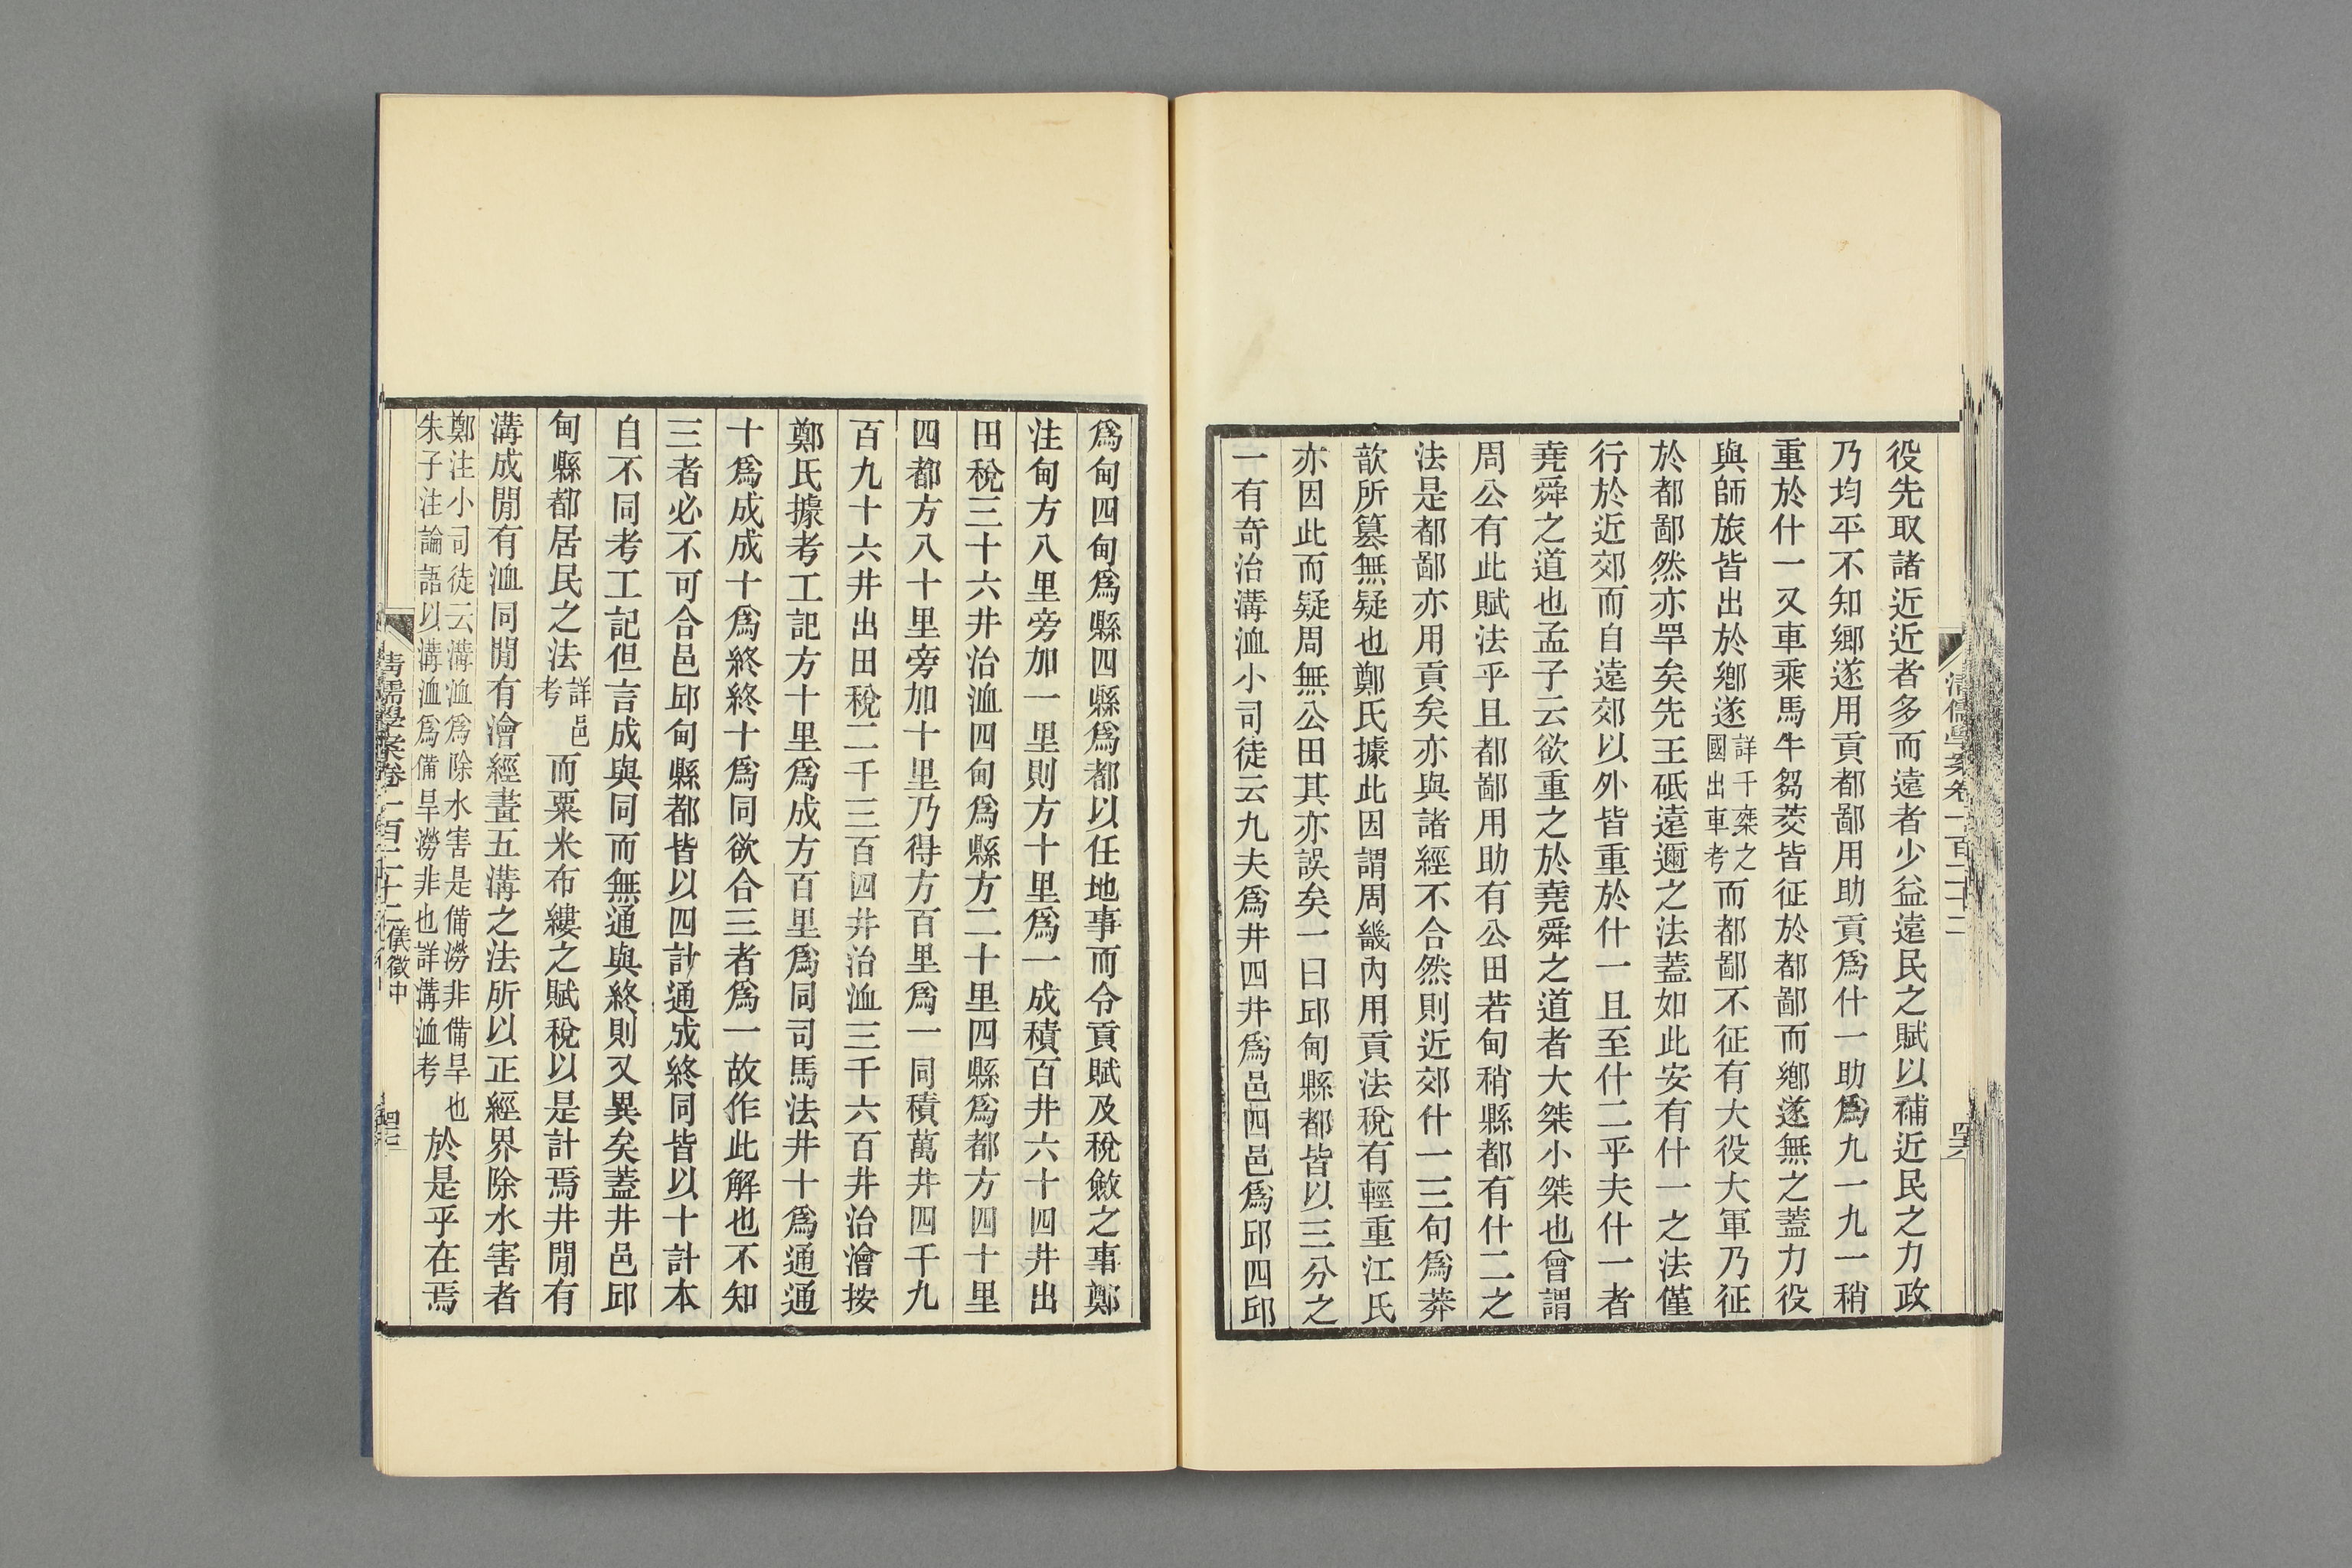 役先取諸近近者多而遠者少益遠民之賦以補近民之力政
乃均平不知鄉遂用貢都鄙用助貢爲什一助爲九一九一稍
重於什一又車乘馬牛芻茭皆征於都鄙而鄉遂無之蓋力役
與師旅皆出於鄉遂詳千乘之國出車考而都鄙不征有大役大軍乃征
於都鄙然亦罕矣先王砥遠邇之法蓋如此安有什一之法僅
行於近郊而自遠郊以外皆重於什一且至什二乎夫什一者
堯舜之道也孟子云欲重之於堯舜之道者大桀小桀也曾謂
周公有此賦法乎且都鄙用助有公田若甸稍縣都有什二之
法是都鄙亦用貢矣亦與諸經不合然則近郊什一三句爲莽
歆所篡無疑也鄭氏據此因謂周畿內用貢法稅有輕重江氏
亦因此而疑周無公田其亦誤矣一曰邱甸縣都皆以三分之
一有奇治溝洫小司徒云九夫爲井四井爲邑四邑爲邱四邱
清儒學案卷一百二十二
爲甸四甸爲縣四縣爲都以任地事而令貢賦及稅斂之事鄭
注甸方八里旁加一里則方十里爲一成積百井六十四井出
田稅三十六井治洫四甸爲縣方二十里四縣爲都方四十里
四都方八十里旁加十里乃得方百里爲一同積萬井四千九
百九十六井出田稅二千三百四井治洫三千六百井治澮按
鄭氏據考工記方十里爲成方百里爲同司馬法井十爲通通
十爲成成十爲終終十爲同欲合三者爲一故作此解也不知
三者必不可合邑邱甸縣都皆以四計通成終同皆以十計本
自不同考工記但言成與同而無通與終則又異矣蓋井邑邱
甸縣都居民之法詳邑考而粟米布縷之賦稅以是計焉井閒有
溝成閒有洫同閒有澮經畫五溝之法所以正經界除水害者
鄭注小司徒云溝洫爲除水害是備澇非備旱也
朱子注論語以溝洫爲備旱澇非也詳溝洫考
於是乎在焉
清儒學案卷一百二十二儀徵中